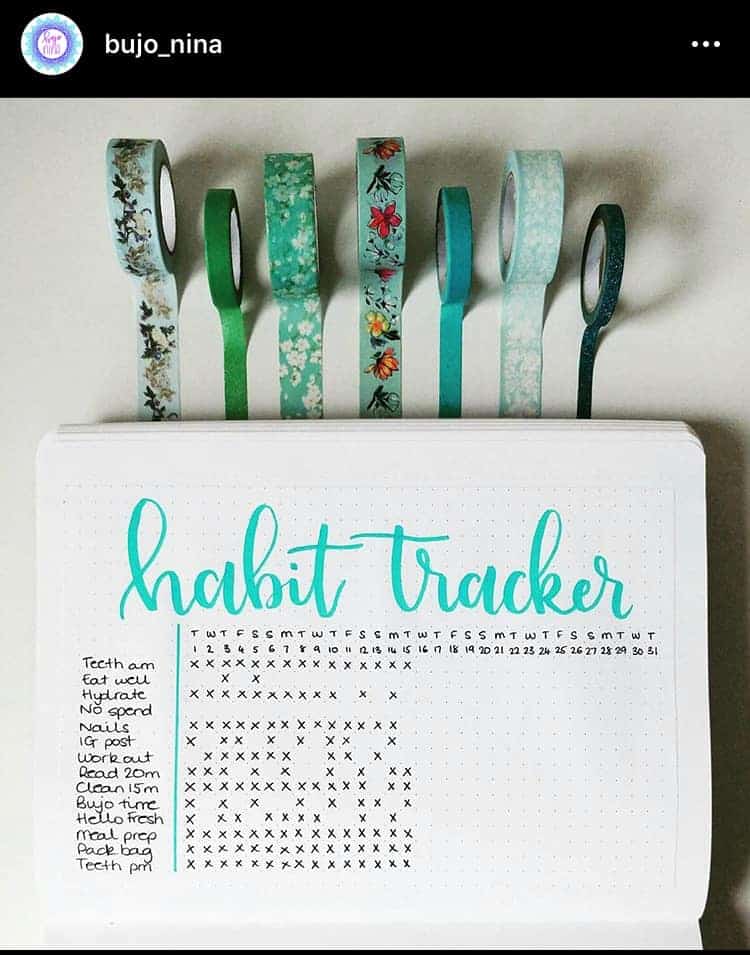 bujo
nina
bujo_nina
habit tracker
T W T F S S M T W T F S S M T W T F S S M T W T F S S M T W T
1 2 3 4 5 6 7 8 9 10 11 12 13 14 15 16 17 18 19 20 21 22 23 24 25 26 27 28 29 30 31
Teeth am
Eat well
Hydrate
No spend
Nails
IG post
Work out
Read 20m
Clean 15m
Bujo time
Hello Fresh
Meal prep
Pack bag
Teeth pm